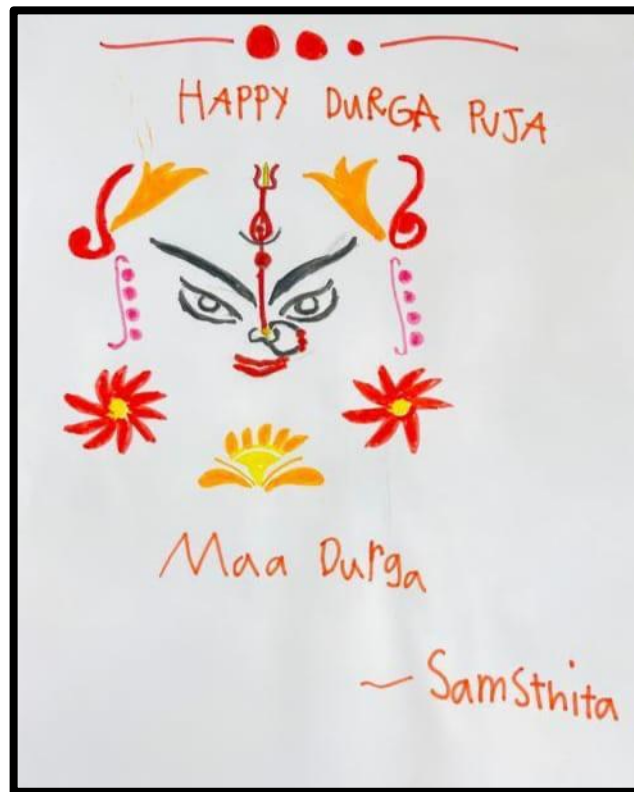 HAPPY DURGA PUJA
Maa Durga
~ Samsthita